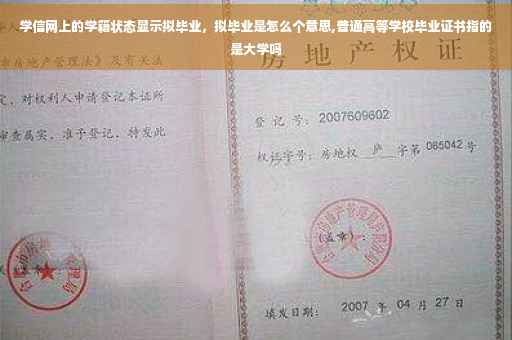 学信网上的学藉状态显示拟毕业，拟毕业是怎么个意思,普通高等学校毕业证书指的
是大学吗
房地产管理法》及有关法
房地产权证
定，对权利人申请登记本证所
审查属实，准予登记，特发此
登记号：2007609602
权证字号：房地权 庐 字第 085042 号
（盖章）：
填发日期： 2007 年 04 月 27 日